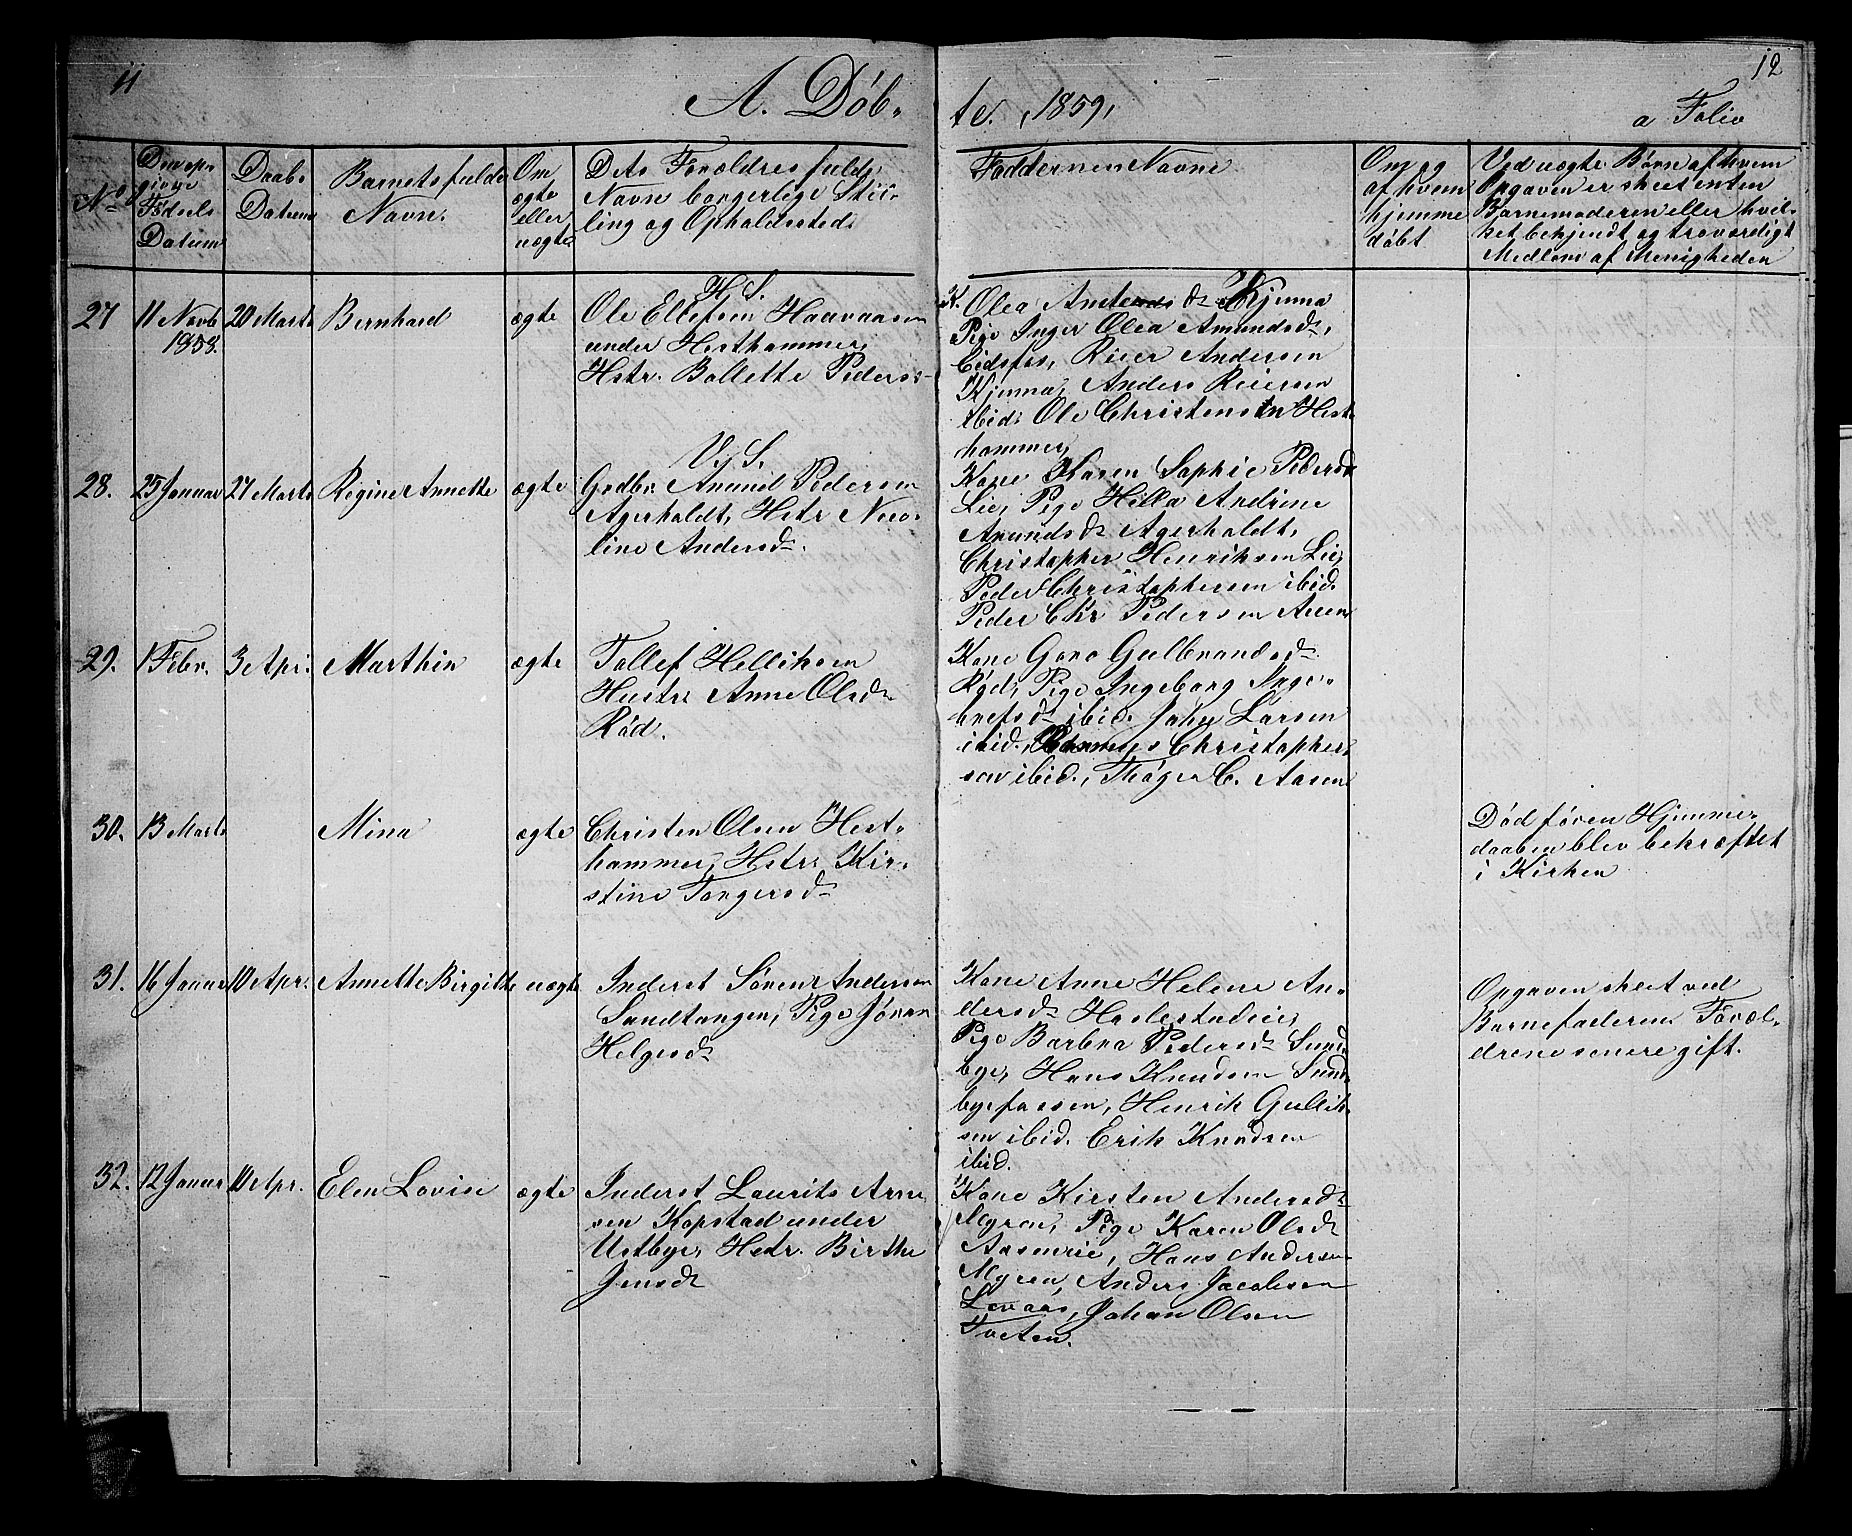 11
A. Døb-
te. 1859,
12
a Folio
No
Den opgivne
Fødsels
Datum
Daabs
Datum
Barnets fulde
Navn.
Om
ægte
eller
uægte
Dets Forældres fulde
Navn borgerlige Stil-
ling og Opholdssted.
Faddernes Navne
Om og
af hvem
hjemme
døbt
Ved uægte Børn af hvem
Opgaven er skeet enten
Barnemoderen eller hvil-
ket bekjendt og troværdigt
Medlem af Menigheden
27
11 Novb
1858.
20 Marts
Bernhard
ægte
H. S.
Ole Ellefsen Haavaasen
under Hesthammer,
Hstr. Bollette Peders-
K. Olea Anders d. Kjenna
Pige Inger Olea Amundsd.
Eidsfos, Reier Andersen
Kjenna, Anders Reiersen
ibid. Ole Christensen Hest-
hammer,
28.
25 Januar
27 Marts
Regine Annette
ægte
V. S.
Gedbr. Anund Pedersen
Agerholdt, Hstr Nico-
line Andersd.
Kone Karen Sophie Pedersd
Lie, Pige Hella Andrine
Anundsd. Agerholdt,
Christopher Henriksen Lie,
Peder Christophersen ibid.
Peder Chr Pedersen
29.
1 Febr.
3 Apr.
Marthin
ægte
Tollef Helliksen
Hustr. Anne Olsd.
Rød.
Kone Goro Gulbrandsd.
Rød, Pige Ingeborg Inge-
bretsd. ibid. John Larsen
ibid. Christopher-
sen ibid., Thøger C. Aasen
30.
13 Marts
Mina
ægte
Christen Olsen Hest-
hammer, Hstr. Kir-
stine Torgersd.
Død føren Hjemme-
daaben blev bekræftet
i Kirken
31.
16 Januar
10 Apr.
Annette Birgitte
uægte
Inderst Søren Andersen
Sandtangen, Pige Jøran
Helgesd.
Kone Anne Helene An-
dersd. Haslestadeie,
Pige Barbra Pedersd. Sund-
bye, Hans Knudsen Sund-
byefossen, Henrik Gullik-
sen ibid. Erik Knudsen
ibid.
Opgaven skeet ved
Barnefaderen. Foræl-
drene senere gift.
32.
12 Januar
10 Apr.
Elen Lovise
ægte
Inderst Laurits Arne-
sen Kopstad under
Ustbye, Hstr. Birthe
Jensd.
Kone Kirsten Andersd.
Myren, Pige Karen Olsd.
Aasmeie, Hans Andersen
Myren, Anders Jacobsen
Lovaas, Johan Olsen
Tveten.